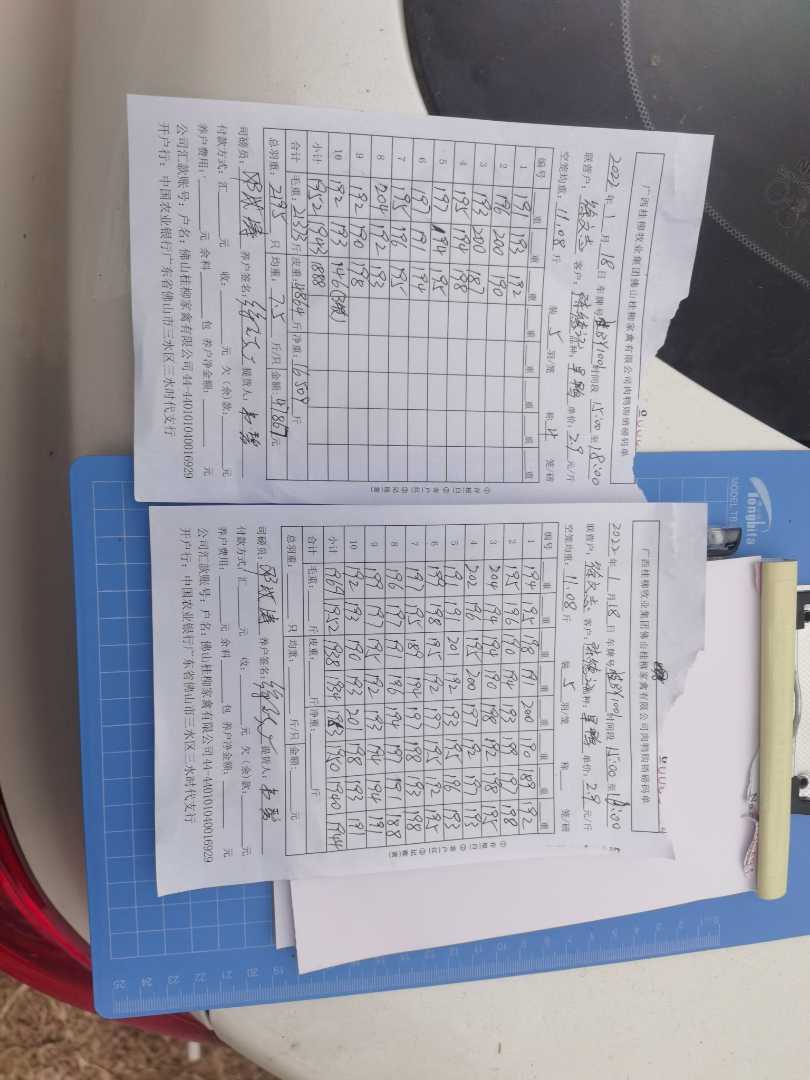 广西桂柳牧业集团佛山桂柳家禽有限公司肉鸭购销磅码单
2022年1月18日 车牌号 时间段 15:00 至 18:00
联营户: 徐文志 客户: 品种: 单价: 2.9 元/斤
空笼均重: 11.08 斤 装 5 羽/笼 称 笼/磅
编号 重 重 重 重 重 重 重 重
1 191 193 192
2 196 200 190
3 193 200 187
4 195 194 198
5 197 194 195
6 197 191 194
7 195 196 195
8 204 192 193
9 192 190 198
10 192 193 146
小计 1952 1943 1888
合计 毛重: 21373 斤 皮重: 4864 斤 净重: 16509 斤
总羽重: 2195 只 均重: 7.5 斤/只 金额: 47867 元
司磅员: 养户签名: 提货人:
付款方式: 汇 元 收: 元 欠(余)款: 元
养户费用: 元 余料 包 养户净金额: 元
公司汇款账号: 户名: 佛山桂柳家禽有限公司 44-440101040016929
开户行: 中国农业银行广东省佛山市三水区三水时代支行
广西桂柳牧业集团佛山桂柳家禽有限公司肉鸭购销磅码单
2022年1月18日 车牌号 时间段 15:00 至 18:00
联营户: 徐文志 客户: 品种: 单价: 2.9 元/斤
空笼均重: 11.08 斤 装 5 羽/笼 称 笼/磅
编号 重 重 重 重 重 重 重 重
1 194 195 198 191 200 190 189 192
2 195 196 190 194 193 199 197 198
3 204 194 194 190 198 192 198 195
4 202 196 195 200 197 192 197 193
5 191 191 201 192 193 195 191 193
6 199 198 195 192 197 195 192 195
7 197 195 189 194 197 198 198 198
8 196 197 191 196 194 197 191 188
9 199 197 195 192 193 194 194 191
10 192 193 190 193 201 198 193 191
小计 1969 1952 1938 1934 1963 1950 1940 1944
合计 毛重: 斤 皮重: 斤 净重: 斤
总羽重: 只 均重: 斤/只 金额: 元
司磅员: 养户签名: 提货人:
付款方式: 汇 元 收: 元 欠(余)款: 元
养户费用: 元 余料 包 养户净金额: 元
公司汇款账号: 户名: 佛山桂柳家禽有限公司 44-440101040016929
开户行: 中国农业银行广东省佛山市三水区三水时代支行